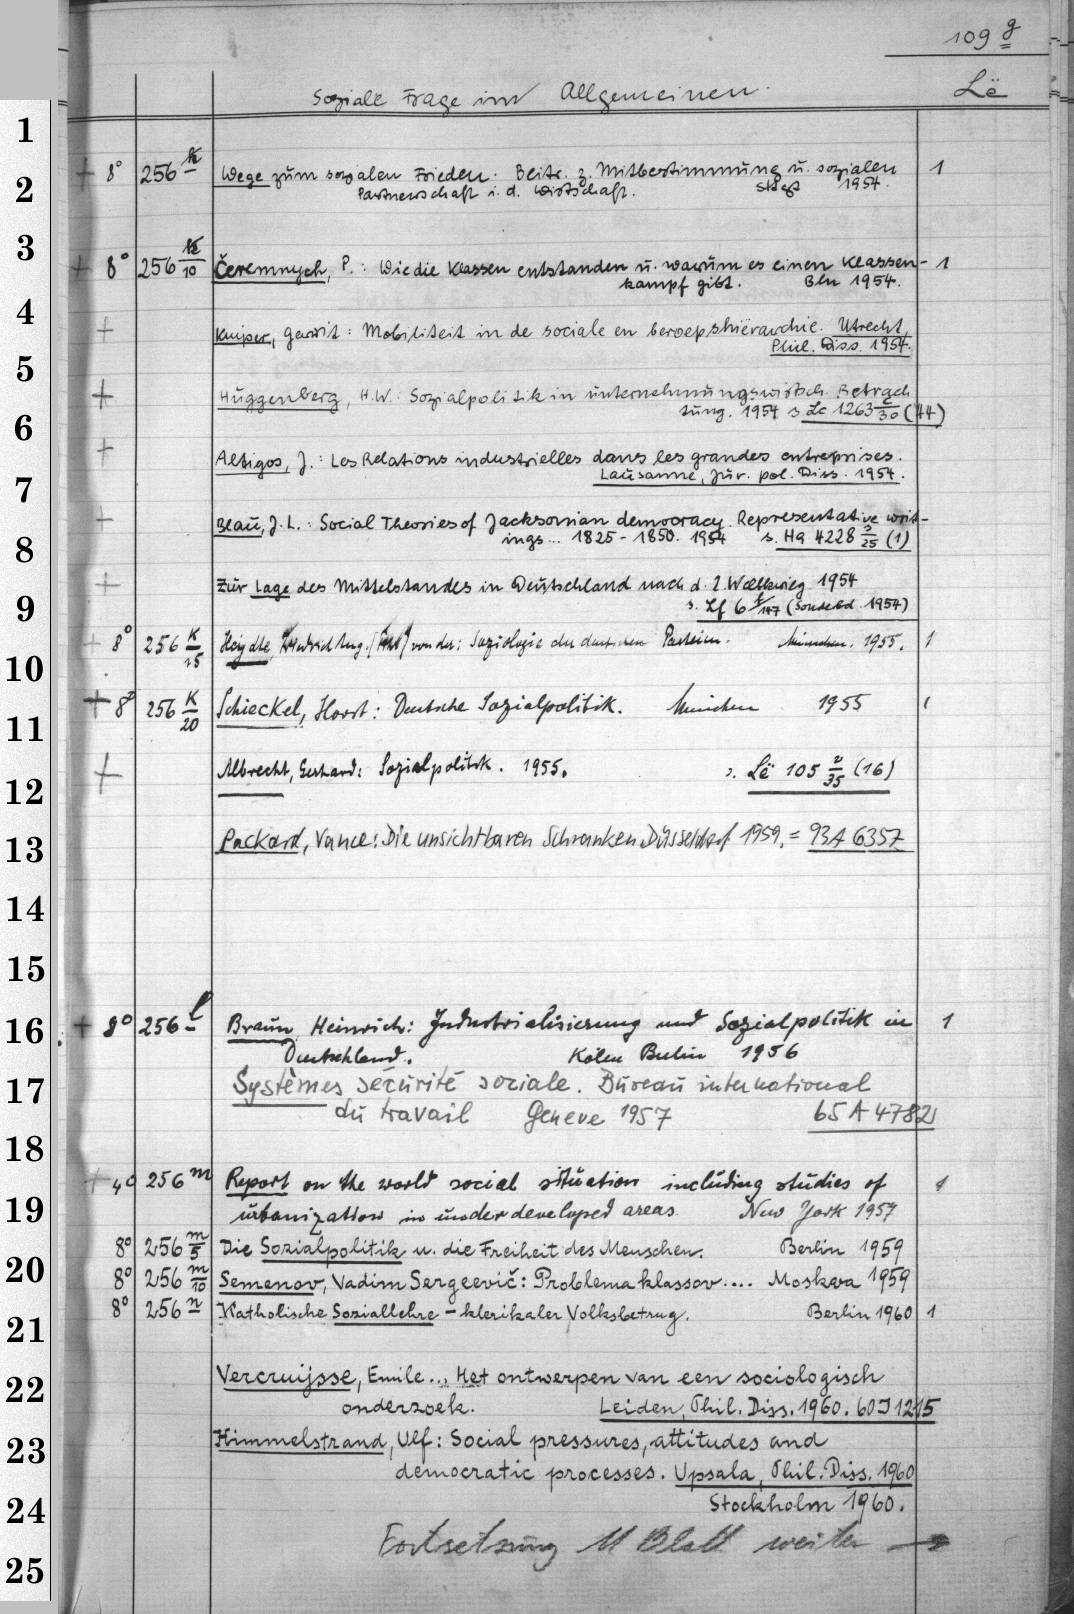 109 g
Soziale Frage im Allgemeinen. Lë
1
+ 8° 256 k Wege zum sozialen Frieden. Beitr. z. Mitbestimmung u. sozialen 1
2
Partnerschaft i. d. Wirtschaft. Stgt 1954.
3
+ 8° 256 k/10 Čeremnych, P.: Wie die Klassen entstanden u. warum es einen Klassen- 1
kampf gibt. Bln 1954.
4
+ Kuiper, Gerrit: Mobiliteit in de sociale en beroepshiërarchie. Utrecht,
Phil. Diss. 1954.
5
+ Huggenberg, H.W.: Sozialpolitik in unternehmungswirtsch. Betrach
6
tung. 1954 s. Lc 1263 c/30 (44)
+ J.: Les Relations industrielles dans les grandes entreprises.
7
Lausanne, Jur. pol. Diss. 1954.
+ Blau, J. L.: Social Theories of Jacksonian democracy. Representative writ-
8
ings... 1825-1850. 1954 s. Ha 4228 s/25 (1)
+ Zur Lage des Mittelstandes in Deutschland nach d. 2. Weltkrieg 1954
9
s. Zf 6 /147 (Sonderbd. 1954)
+ 8° 256 k/15 Heydte, von der: Soziologie der deutschen Parteien. München. 1955. 1
10
+ 8° 256 k/20 Schieckel, Horst: Deutsche Sozialpolitik. München 1955 1
11
+ Albrecht, Gerhard: Sozialpolitik. 1955. s. Lë 105 v/35 (16)
12
Packard, Vance: Die unsichtbaren Schranken. Düsseldorf 1959. = 93A 6357
13
14
15
+ 8° 256 l Braun, Heinrich: Industrialisierung und Sozialpolitik in 1
16
Deutschland. Köln Berlin 1956
17
Systèmes sécurité sociale. Bureau international
du travail Geneve 1957 65 A 4782
18
+ 4° 256 m Report on the world social situation including studies of 1
19
urbanization in underdeveloped areas. New York 1957
8° 256 m/5 Die Sozialpolitik u. die Freiheit des Menschen. Berlin 1959
20
8° 256 m/10 Semenov, Vadim Sergeevič: Problema klassov.... Moskva 1959
8° 256 n Katholische Soziallehre – klerikaler Volksbetrug. Berlin 1960 1
21
Vercruijsse, Emile... Het ontwerpen van een sociologisch
22
onderzoek. Leiden, Phil. Diss. 1960. 60 J 1215
Himmelstrand, Ulf: Social pressures, attitudes and
23
democratic processes. Upsala, Phil. Diss. 1960
Stockholm 1960.
24
Fortsetzung 11 Blatt weiter →
25